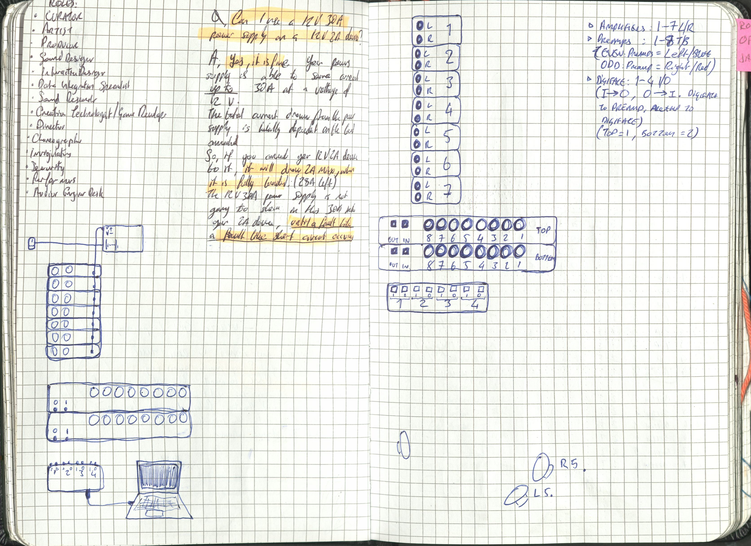 ROLES:
• CURATOR
• ARTIST
• Producer
• Sound Designer
• Interaction Designer
• Data Integration Specialist
• Sound Recorder
• Creative Technologist / Game Developer
• Director
• Choreographer
• Invigilators
• Performers
• Audio Engine Desk
Q, Can I use a 12V 30A
power supply on a 12V 2A device?
A, Yes, it is fine. Your power
supply is able to source current
up to 30A at a voltage of
12V.
The total current drawn from the power
supply is totally dependent on the load
connected
So, if you connect your 12V 2A device
to it, it will draw 2A max, when
it is fully loaded.
The 12V 30A power supply is not
going to shove in this 30A into
your 2A device, until a fault like
a short current occurs
1 2 3 4
L 1
R
L 2
R
L 3
R
L 4
R
L 5
R
L 6
R
L 7
R
OUT IN 8 7 6 5 4 3 2 1 TOP
OUT IN 8 7 6 5 4 3 2 1 BOTTOM
1 2 3 4
R5.
L5.
▹ AMPLIFIERS: 1-7 L/R
▹ PREAMPS: 1-8 T/B
(EVEN Preamp = Left/Blue
ODD Preamp = Right/Red)
▹ DIGIFACE: 1-4 I/O
(I→O, O→I. DIGIFACE
to PREAMP, PREAMP to
DIGIFACE)
(TOP=1, BOTTOM=2)